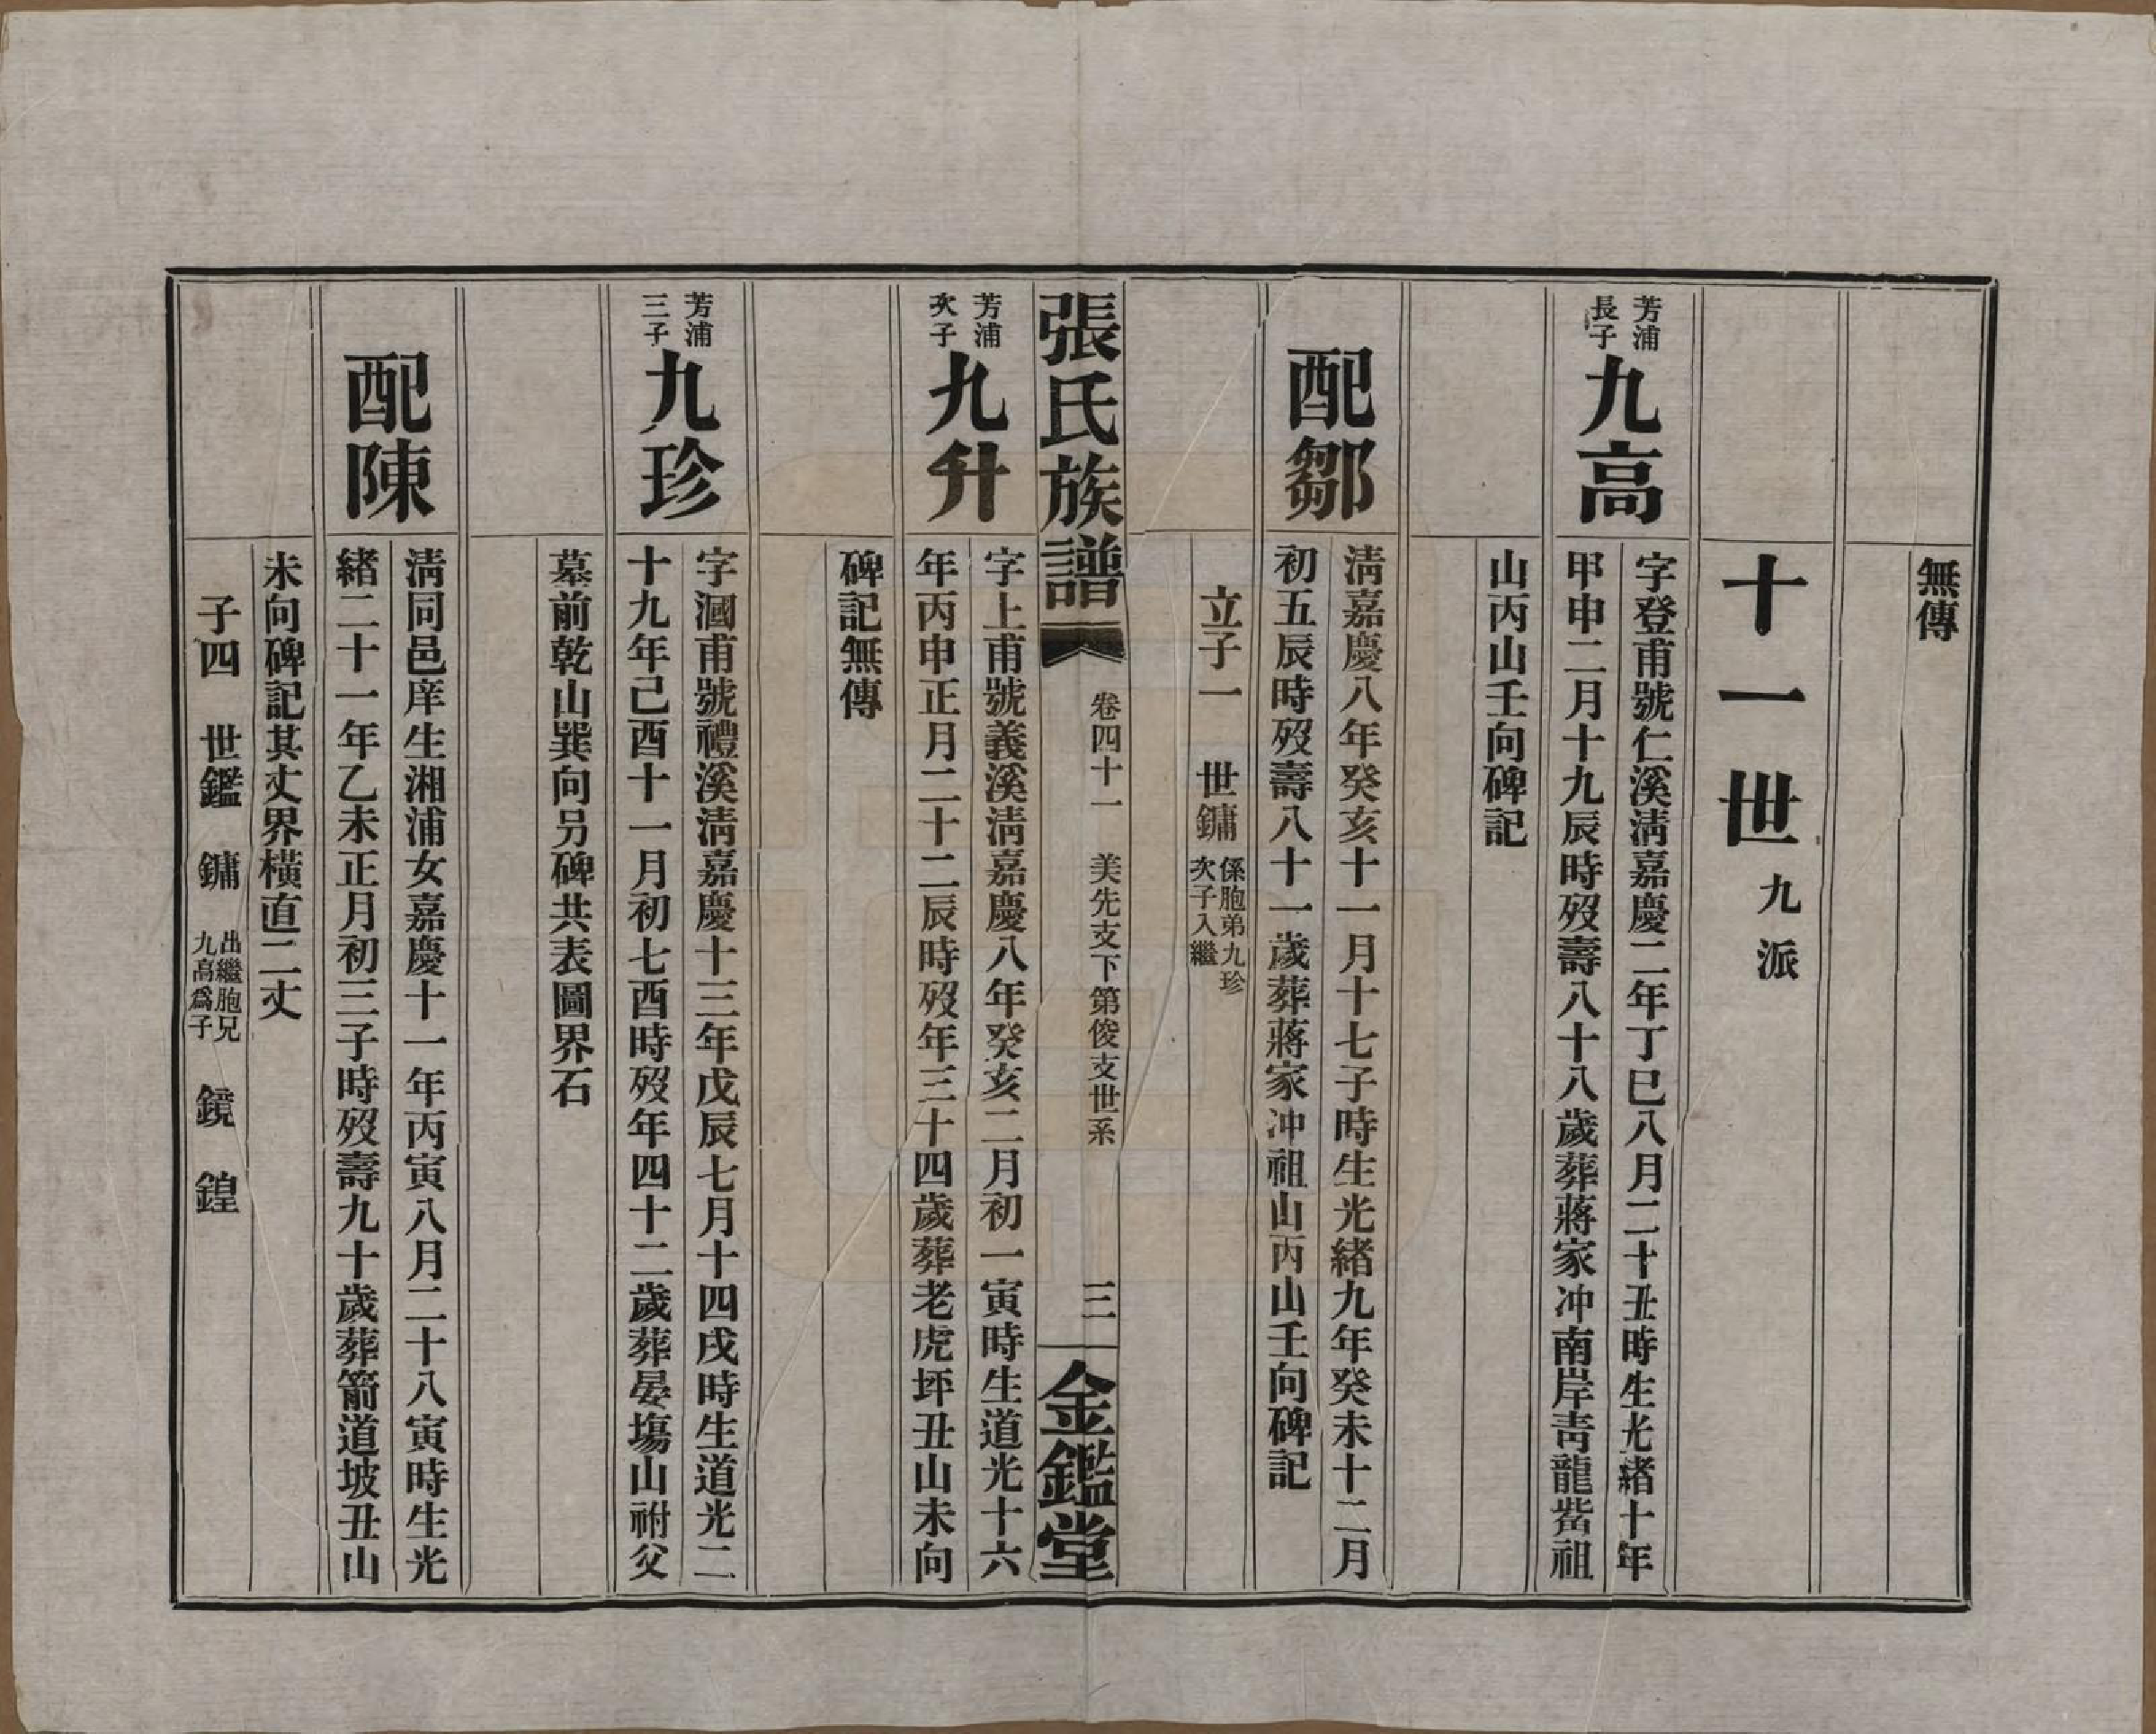 無傳
十一世 九派
芳浦
長子
九高
字登甫號仁溪淸嘉慶二年丁巳八月二十丑時生光緒十年
甲申二月十九辰時歿壽八十八歲葬蔣家冲南岸靑龍嘴祖
山丙山壬向碑記
配鄒
淸嘉慶八年癸亥十一月十七子時生光緒九年癸未十二月
初五辰時歿壽八十一歲葬蔣家冲祖山丙山壬向碑記
立子一 世鏞
係胞弟九珍
次子入繼
張氏族譜
卷四十一 美先支下第俊支世系
三
金鑑堂
芳浦
次子
九升
字上甫號義溪淸嘉慶八年癸亥二月初一寅時生道光十六
年丙申正月二十二辰時歿年三十四歲葬老虎坪丑山未向
碑記無傳
芳浦
三子
九珍
字漍甫號禮溪淸嘉慶十三年戊辰七月十四戌時生道光二
十九年己酉十一月初七酉時歿年四十二歲葬晏塲山祔父
墓前乾山巽向另碑共表圖界石
配陳
淸同邑庠生湘浦女嘉慶十一年丙寅八月二十八寅時生光
緒二十一年乙未正月初三子時歿壽九十歲葬箭道坡丑山
未向碑記其丈界橫直二丈
子四 世鑑 鏞
出繼胞兄
九高爲子
鏡 鍠